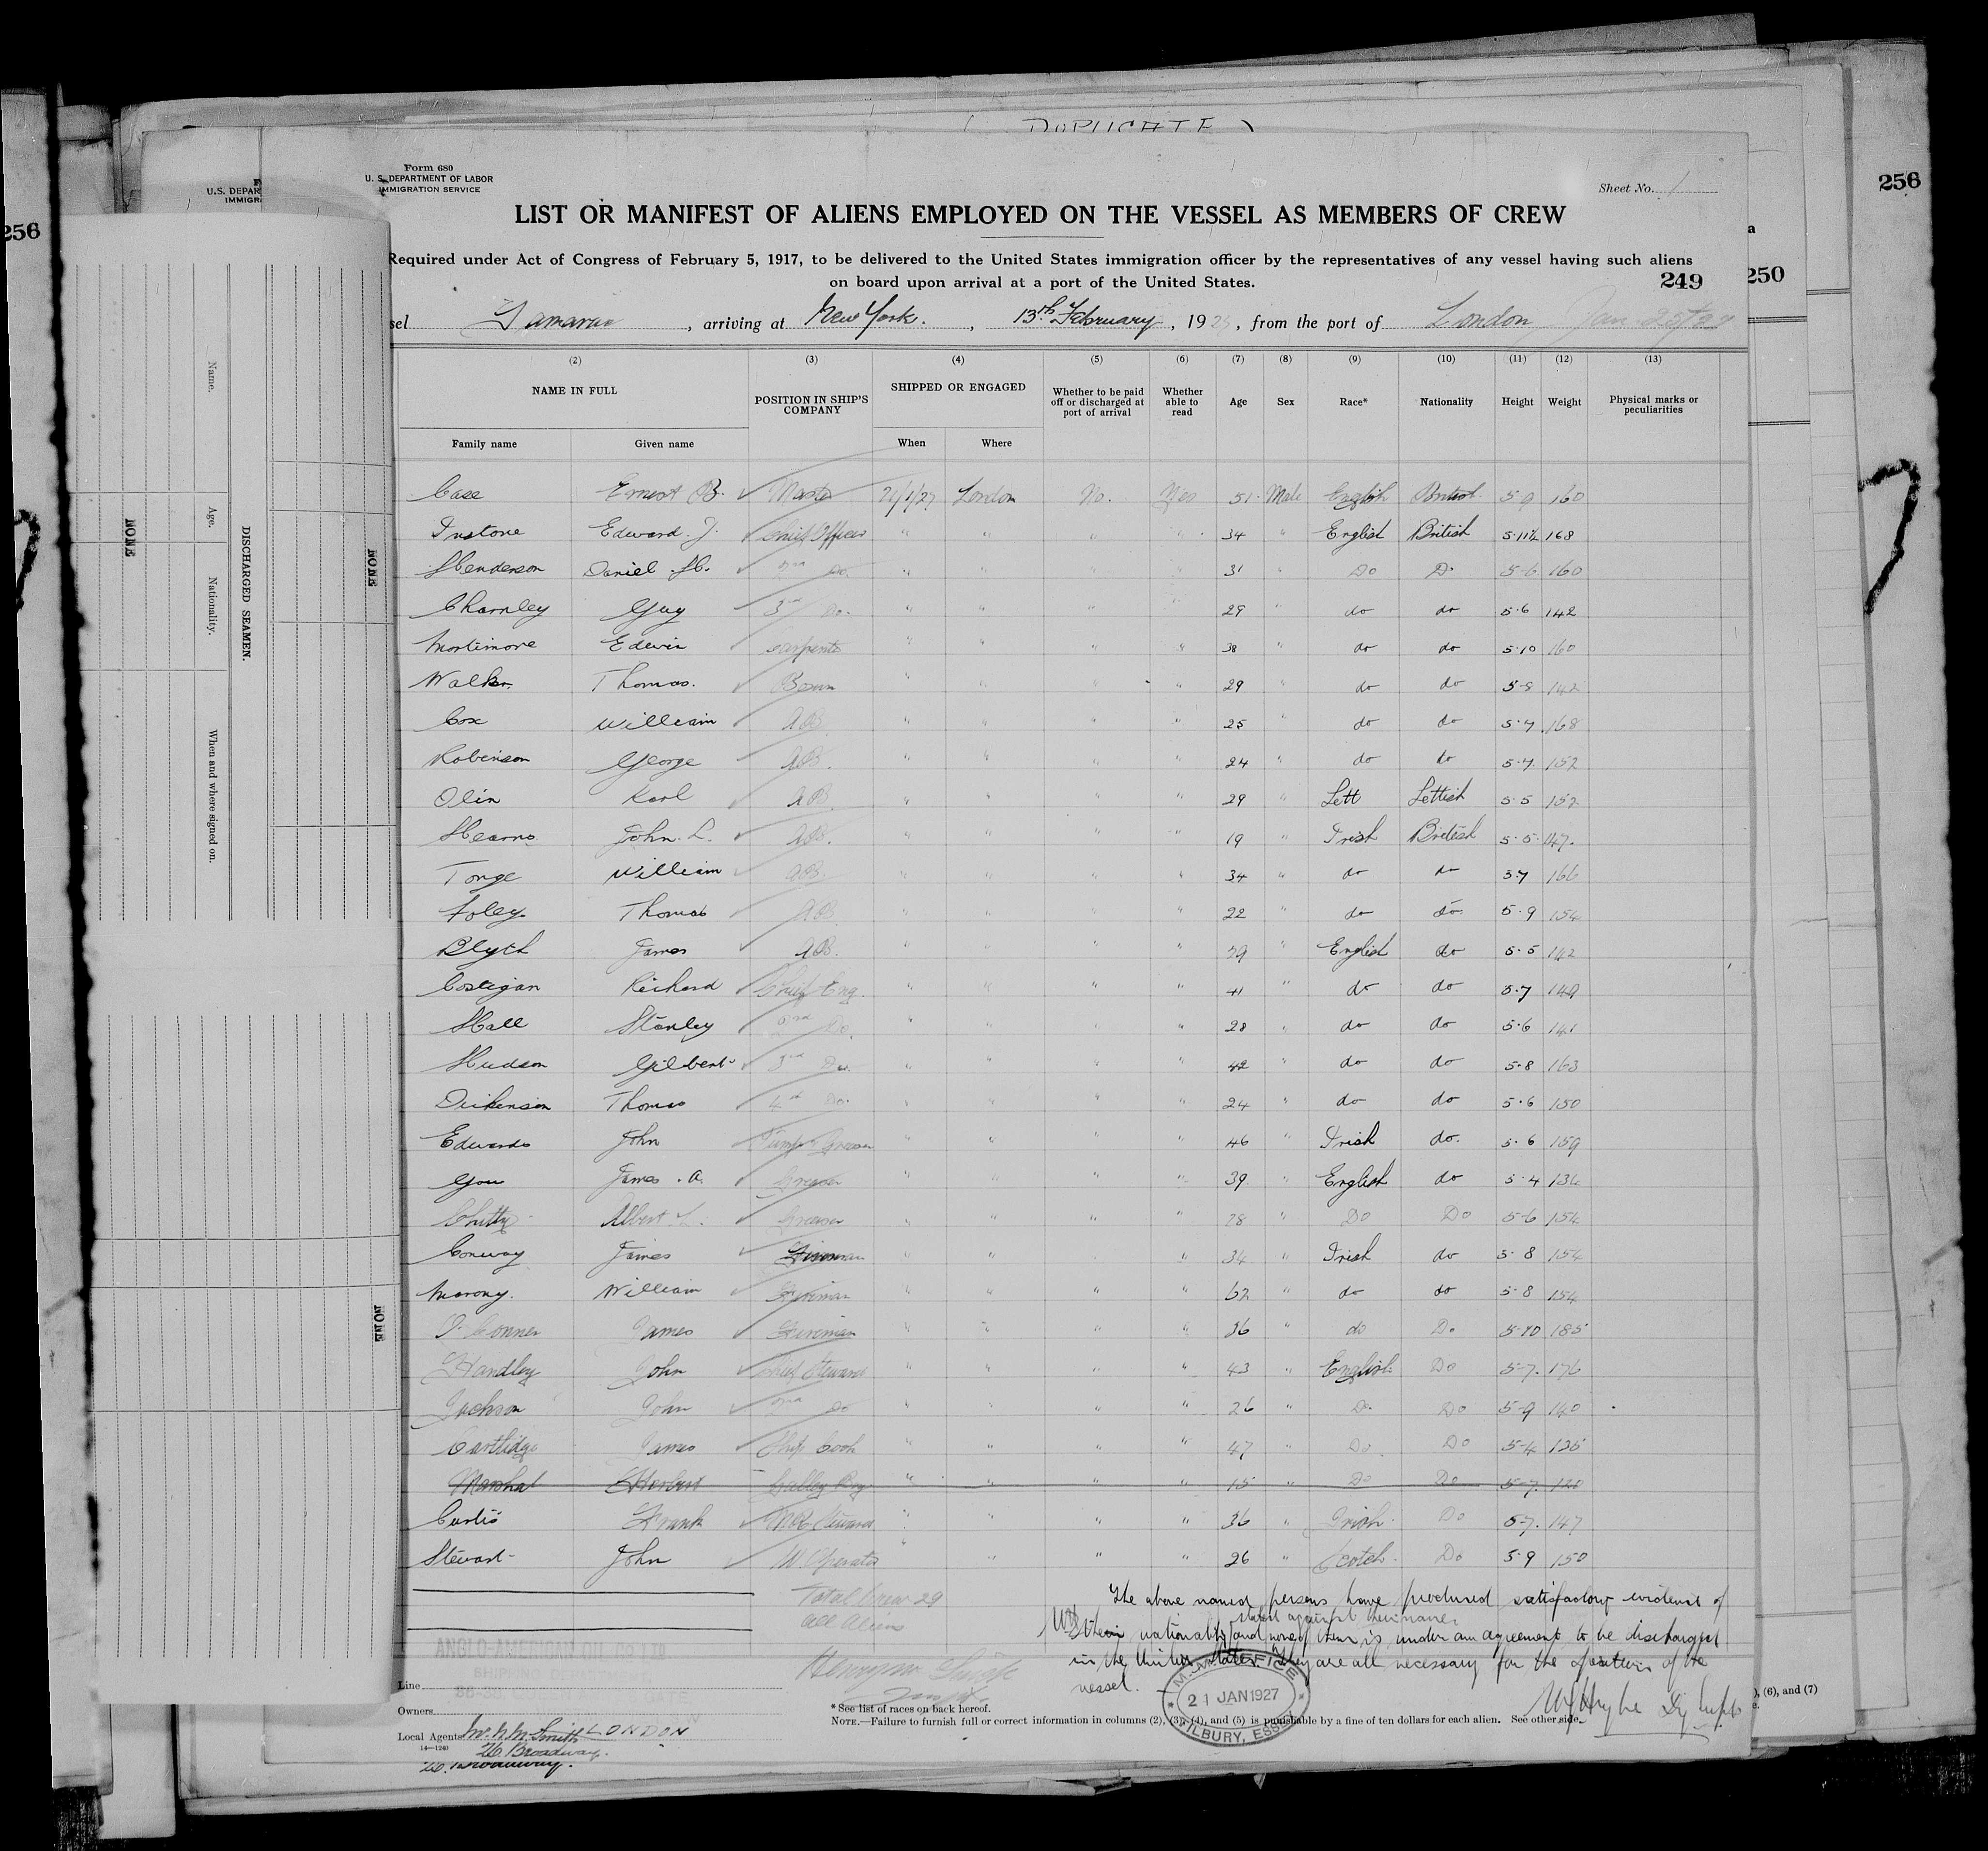 DUPLICATE
256
256
a
250
Form 680
U. S. DEPARTMENT OF LABOR
IMMIGRATION SERVICE
U.S. DEPAR
IMMIGRA
Sheet No. 1
LIST OR MANIFEST OF ALIENS EMPLOYED ON THE VESSEL AS MEMBERS OF CREW
Required under Act of Congress of February 5, 1917, to be delivered to the United States immigration officer by the representatives of any vessel having such aliens
on board upon arrival at a port of the United States.
249
sel , arriving at New York. , 13th February, 19 , from the port of London
(2) (3) (4) (5) (6) (7) (8) (9) (10) (11) (12) (13)
NAME IN FULL POSITION IN SHIP'S COMPANY SHIPPED OR ENGAGED Whether to be paid off or discharged at port of arrival Whether able to read Age Sex Race* Nationality Height Weight Physical marks or peculiarities
Family name Given name When Where
Case Ernest B. Master London No. Yes 51 Male English British 5-9 160
Instone Edward J. Chief Officer " " " " 34 " English British 5-11½ 168
Henderson Daniel H. 2nd Do. " " " " 31 " Do Do 5-6 160
Charnley Guy 3rd Do. " " " " 29 " do do 5-6 142
Mortimore Edwin Carpenter " " " " 38 " do do 5-10 160
Walker Thomas. Bosun " " " " 29 " do do 5-8 142
Cox William AB " " " " 25 " do do 5-7 168
Robinson George AB. " " " " 24 " do do 5-7 152
Olin Karl AB. " " " " 29 " Lett Lettish 5-5 152
Hearns John. L. AB. " " " " 19 " Irish British 5-5 147.
Tonge William AB. " " " " 34 " do do 5-7 166
Foley Thomas AB " " " " 22 " do do 5-9 154
Blyth James AB. " " " " English do 5-5 142
Costigan Richard Chief Eng. " " " " 41 " do do 5-7 149
Hall Stanley Do. " " " " 28 " do do 5-6 141
Hudson Gilbert 3rd Do. " " " " 42 " do do 5-8 163
Dickenson Thomas 4th Do. " " " " 24 " do do 5-6 150
Edwards John Greaser " " " " 46 " Irish do. 5-6 159
James. A. Greaser " " " " 39 " English do 5-4
Chitty Albert Greaser " " " " 28 " Do Do 5-6 154
Conway James Fireman " " " 34 " Irish do 5-8 154
Marony. William Fireman " " " " 62 " do do 5-8 154
O'Conner James Fireman " " " " 36 " do Do 5-10 185
Handley John Chief Steward " " " " 43 " English Do 5-7. 176
Jackson John 2nd Do " " " " 26 " Do Do 5-9 140
Cartlidge James Ship Cook " " " " 47 " Do Do 5-4 135
Marshal Herbert Galley Boy " " " " 15 " Do Do 5-7. 120
Curtis Frank Steward " " " " 36 " Irish Do 5-7. 147
Stewart John W. Operator " " " " 26 " Scotch Do 5-9 150
Total Crew 29
all Aliens
The above named persons have produced satisfactory evidence of
their nationality stated against their names and none of them is under an agreement to be discharged
in the United States. They are all necessary for the operation of the
vessel.
ANGLO-AMERICAN OIL CO LTD
Line
Owners
Local Agents LONDON
14—1240
26. Broadway.
26. Broadway.
* See list of races on back hereof.
NOTE.—Failure to furnish full or correct information in columns (2), (3), (4), and (5) is punishable by a fine of ten dollars for each alien. See other side.
), (6), and (7)
e.
M.M. OFFICE
21 JAN 1927
TILBURY, ESSEX
DISCHARGED SEAMEN.
Name. Age. Nationality. When and where signed on.
NONE
NONE
NONE